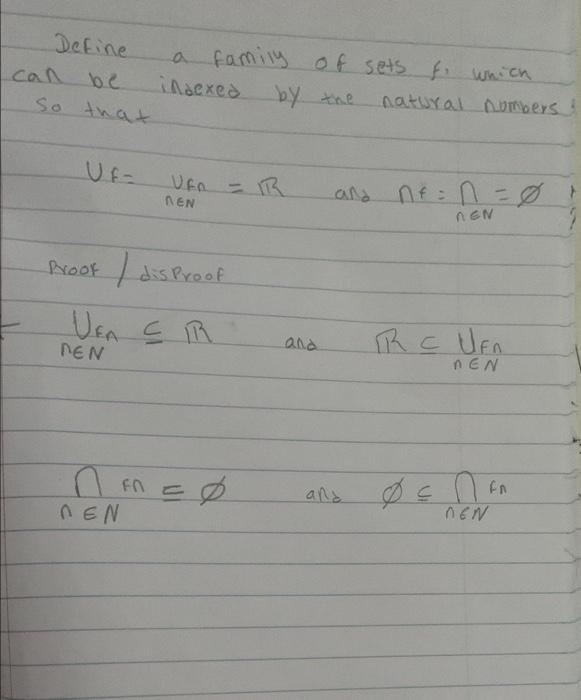 Define a family of sets f, which
can be indexed by the natural numbers
so that
Uf = Ufn = ℝ and ∩f = ∩ = ∅
n∈N n∈N
Proof / disproof
Ufn ⊆ ℝ and ℝ ⊆ Ufn
n∈N n∈N
∩ fn ⊆ ∅ and ∅ ⊆ ∩ fn
n∈N n∈N